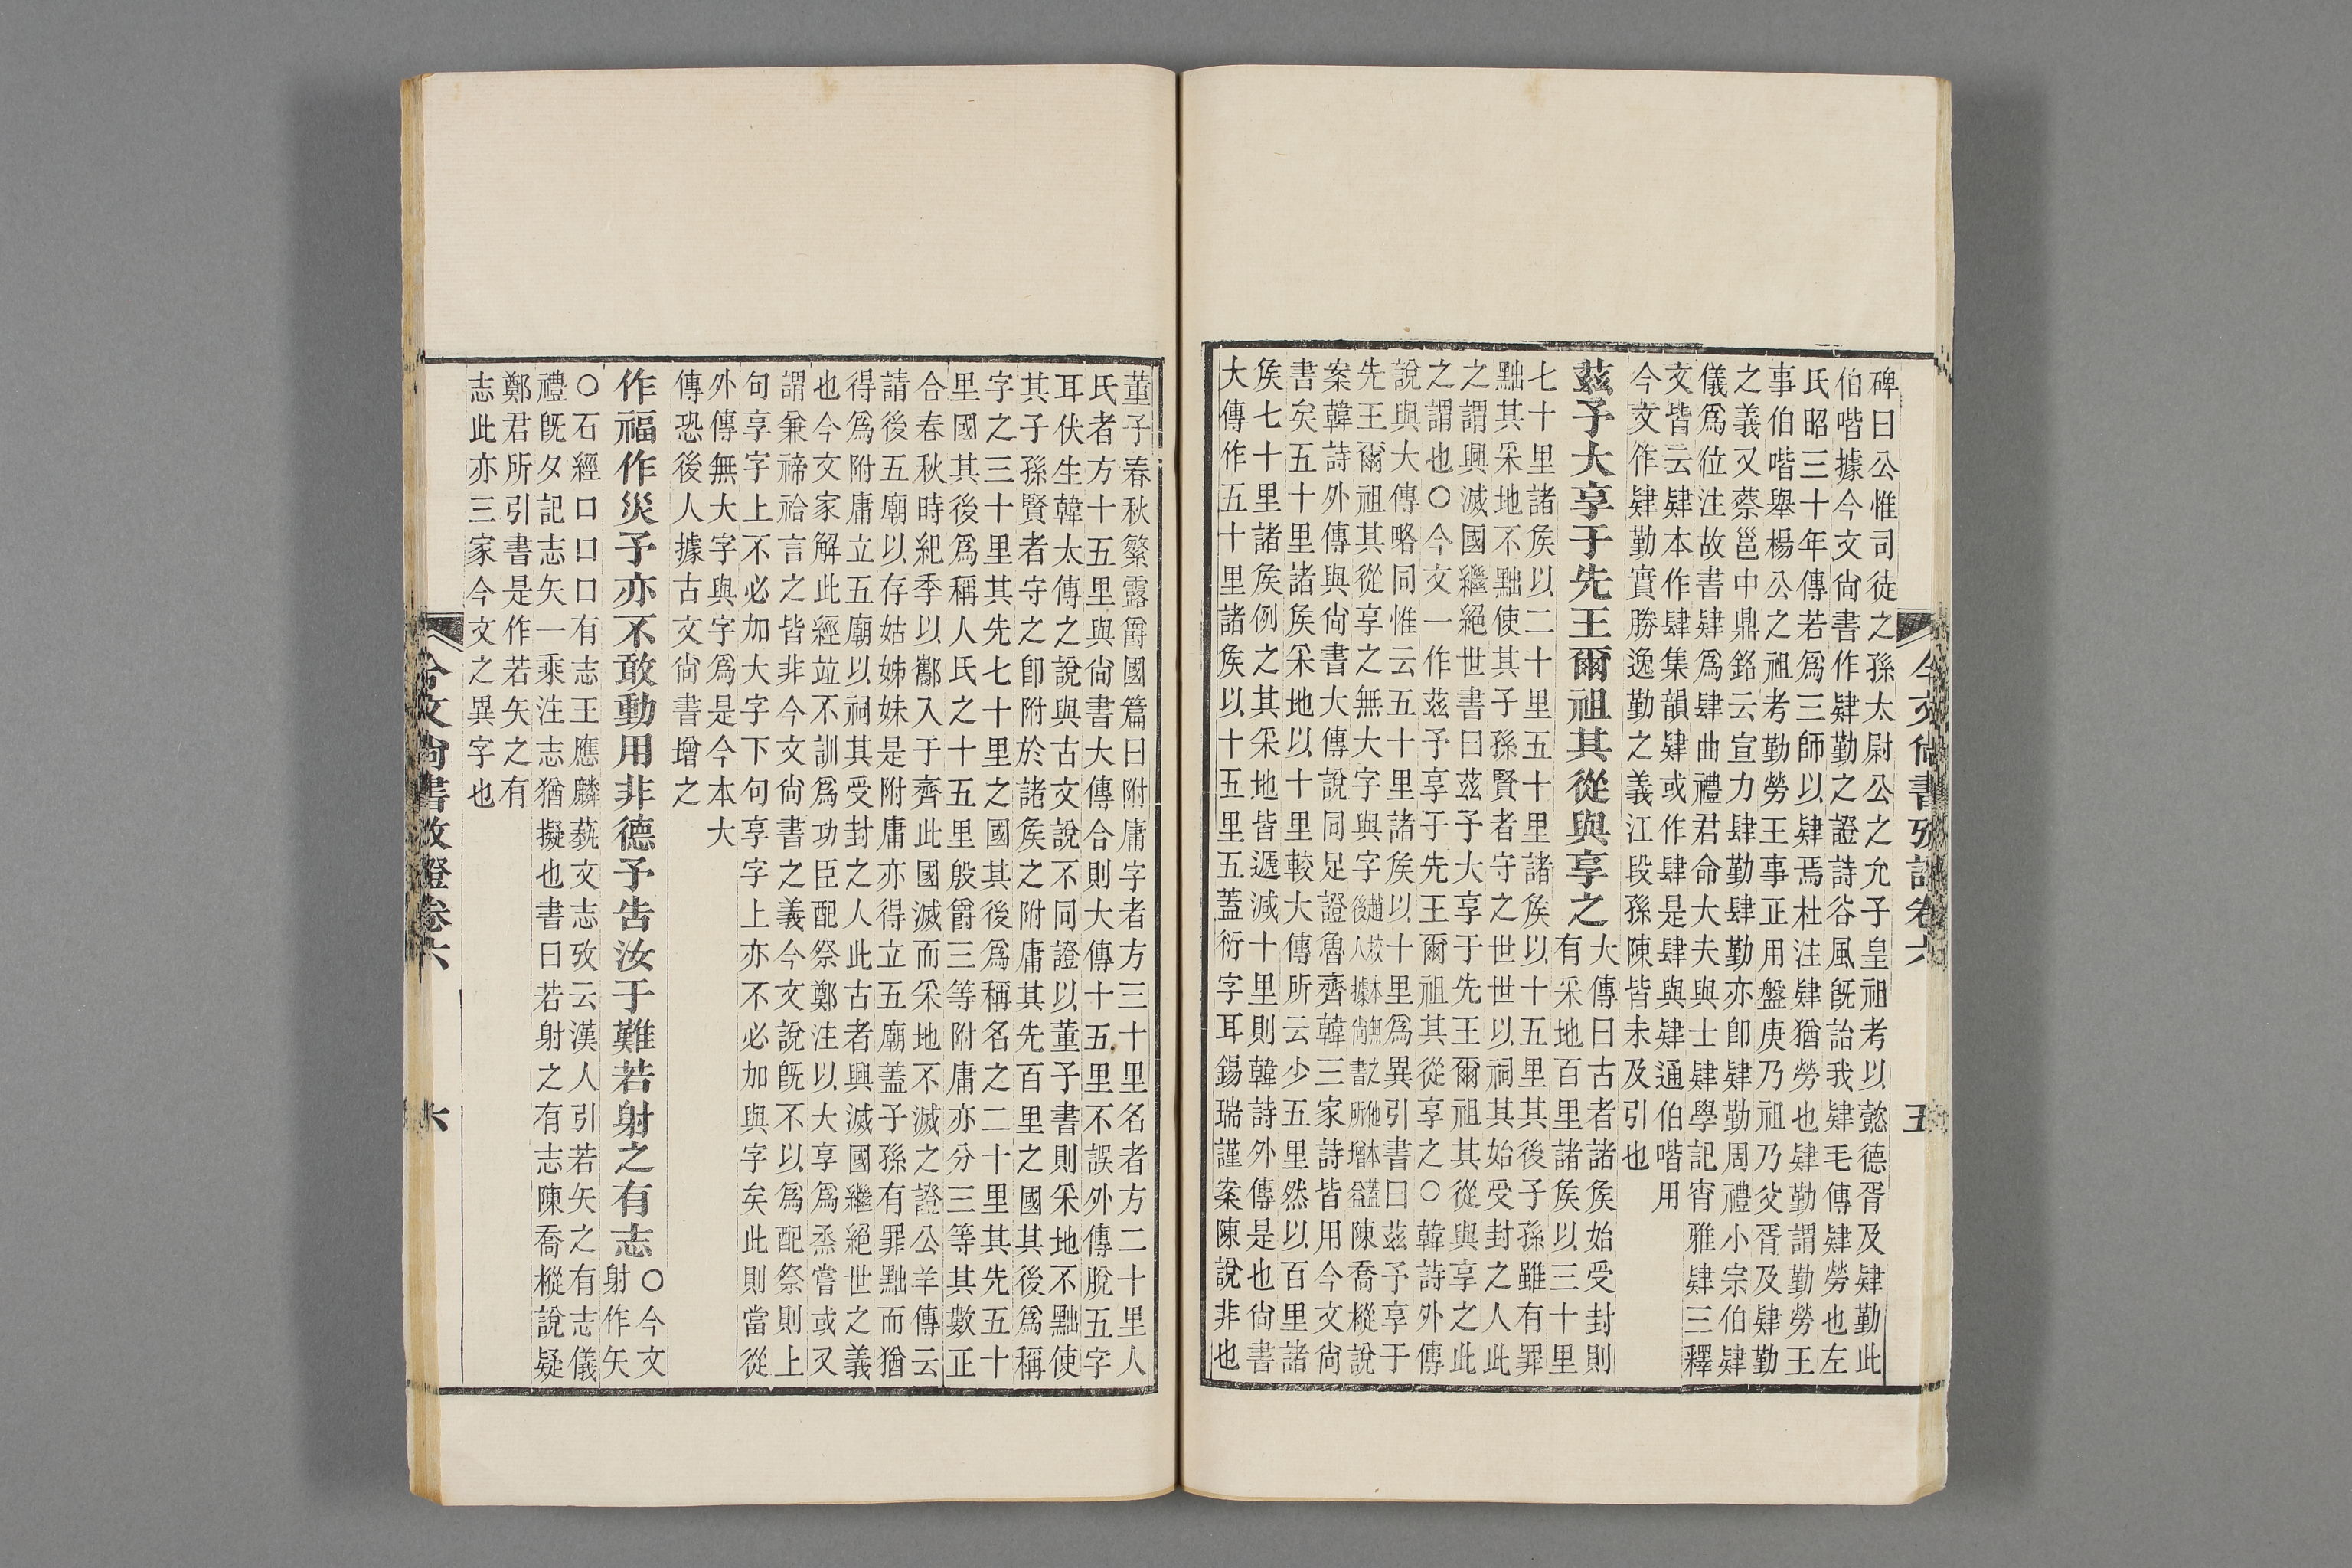 碑曰公惟司徒之孫太尉公之允子皇祖考以懿德胥及肄勤此
伯喈據今文尙書作肄勤之證詩谷風旣詒我肄毛傳肄勞也左
氏昭三十年傳若爲三師以肄焉杜注肄猶勞也肄勤謂勤勞王
事伯喈舉楊公之祖考勤勞王事正用盤庚乃祖乃父胥及肄勤
之義又蔡邕中鼎銘云宣力肆勤肆勤亦卽肄勤周禮小宗伯肄
儀爲位注故書肄爲肆曲禮君命大夫與士肄學記宵雅肄三釋
文皆云肄本作肆集韻肄或作肆是肆與肄通伯喈用
今文作肄勤實勝逸勤之義江段孫陳皆未及引也
茲予大享于先王爾祖其從與享之
大傳曰古者諸矦始受封則
有采地百里諸矦以三十里
七十里諸矦以二十里五十里諸矦以十五里其後子孫雖有罪
黜其采地不黜使其子孫賢者守之世世以祠其始受封之人此
之謂興滅國繼絕世書曰茲予大享于先王爾祖其從與享之此
之謂也○今文一作茲予享于先王爾祖其從享之○韓詩外傳
說與大傳略同惟云五十里諸矦以十里爲異引書曰茲予享于
先王爾祖其從享之無大字與字
趙校本無之他本蓋
後人據尙書所增益
陳喬樅說
案韓詩外傳與尙書大傳說同足證魯齊韓三家詩皆用今文尙
書矣五十里諸矦采地以十里較大傳所云少五里然以百里諸
矦七十里諸矦例之其采地皆遞減十里則韓詩外傳是也尙書
大傳作五十里諸矦以十五里五蓋衍字耳錫瑞謹案陳說非也
今文尙書攷證卷六
五
董子春秋繁露爵國篇曰附庸字者方三十里名者方二十里人
氏者方十五里與尙書大傳合則大傳十五里不誤外傳脫五字
耳伏生韓太傳之說與古文說不同證以董子書則采地不黜使
其子孫賢者守之卽附於諸矦之附庸其先百里之國其後爲稱
字之三十里其先七十里之國其後爲稱名之二十里其先五十
里國其後爲稱人氏之十五里殷爵三等附庸亦分三等其數正
合春秋時紀季以酅入于齊此國滅而采地不滅之證公羊傳云
請後五廟以存姑姊妹是附庸亦得立五廟蓋子孫有罪黜而猶
得爲附庸立五廟以祠其受封之人此古者興滅國繼絕世之義
也今文家解此經竝不訓爲功臣配祭鄭注以大享爲烝嘗或又
謂兼禘祫言之皆非今文尙書之義今文說旣不以爲配祭則上
句享字上不必加大字下句享字上亦不必加與字矣此則當從
外傳無大字與字爲是今本大
傳恐後人據古文尙書增之
作福作災予亦不敢動用非德予告汝于難若射之有志
○今文
射作矢
○石經口口口有志王應麟蓺文志攷云漢人引若矢之有志儀
禮旣夕記志矢一乘注志猶擬也書曰若射之有志陳喬樅說疑
鄭君所引書是作若矢之有
志此亦三家今文之異字也
今文尙書攷證卷六
六